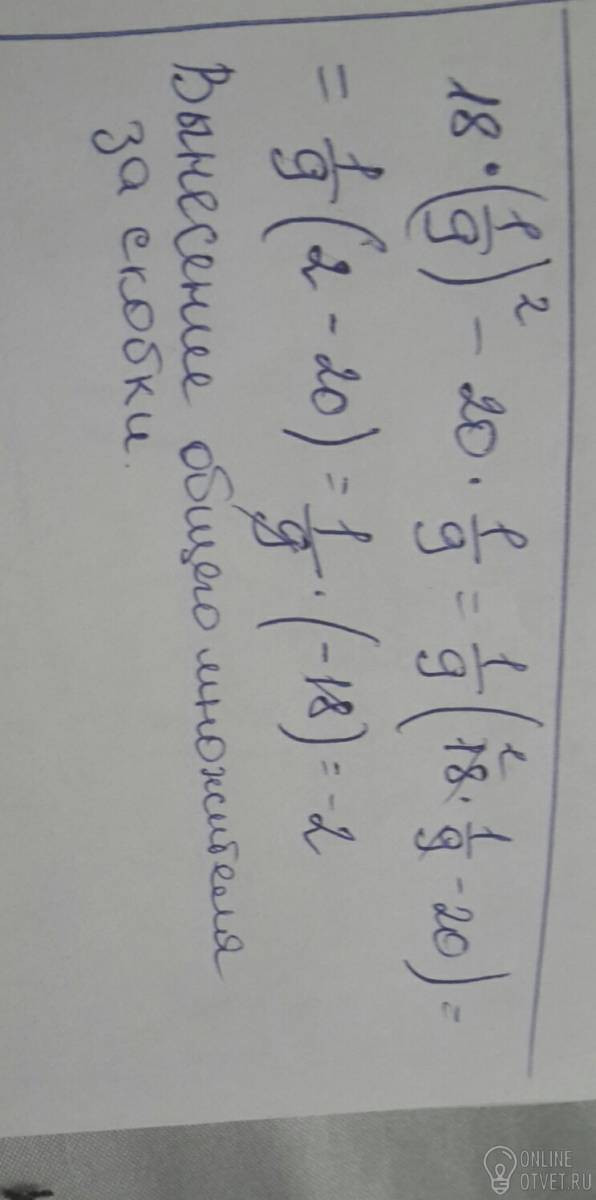 18·(1/9)² - 20·1/9 = 1/9(18·1/9 - 20) =
= 1/9(2 - 20) = 1/9·(-18) = -2
Вынесение общего множителя
за скобки.
ONLINE
OTVET.RU